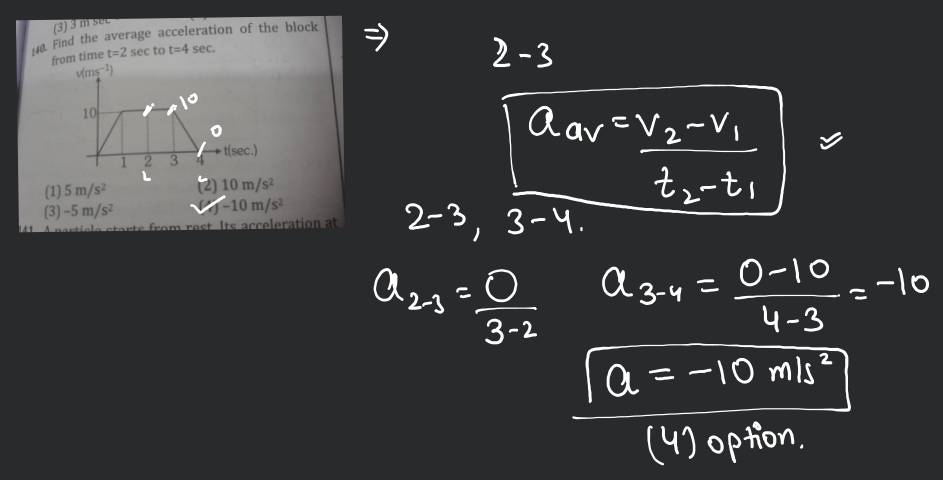 (3) 3 m sec
140. Find the average acceleration of the block
from time t=2 sec to t=4 sec.
v(ms⁻¹)
10
10
0
1 2 3 4 t(sec.)
(1) 5 m/s² (2) 10 m/s²
(3) -5 m/s² (4) -10 m/s²
41. A particle starts from rest. Its acceleration at
⇒
2-3
a av = v₂-v₁ / t₂-t₁
2-3, 3-4.
a₂₋₃ = 0 / 3-2
a₃₋₄ = 0-10 / 4-3 = -10
a = -10 m/s²
(4) option.